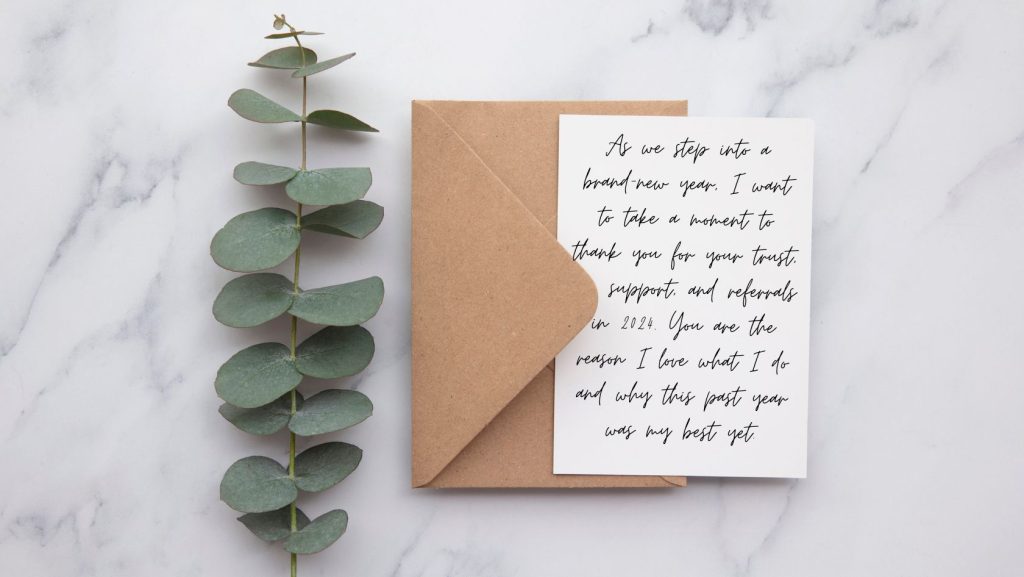 As we step into a
brand-new year, I want
to take a moment to
thank you for your trust,
support, and referrals
in 2024. You are the
reason I love what I do
and why this past year
was my best yet.